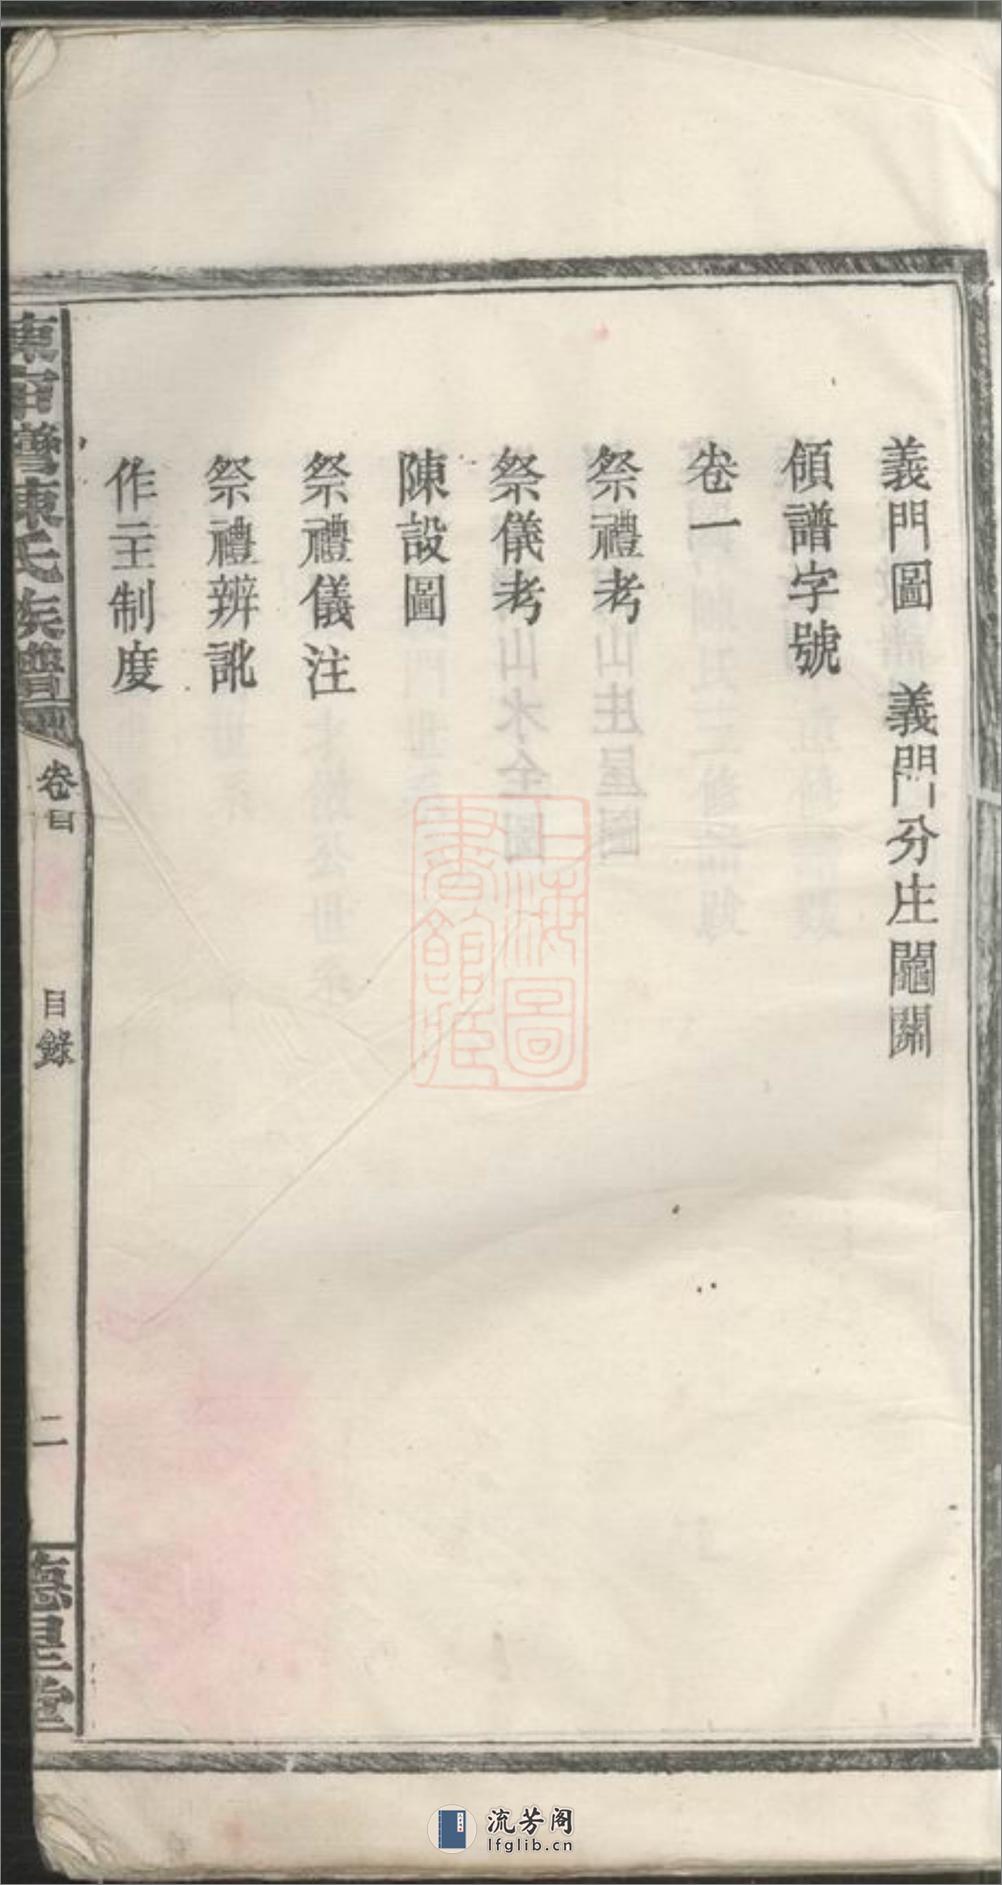 義門圖 義門分庄鬮關
領譜字號
卷一
祭禮考
祭儀考
陳設圖
祭禮儀注
祭禮辨訛
作主制度
陳氏族譜
卷首
目錄
二
德星堂
上海圖書館藏
流芳阁
lfglib.cn